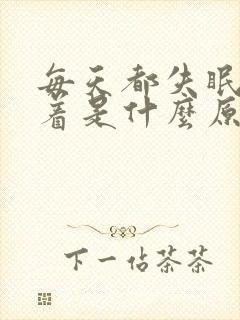 每天都失眠
着是什麼原
下一佔茶茶